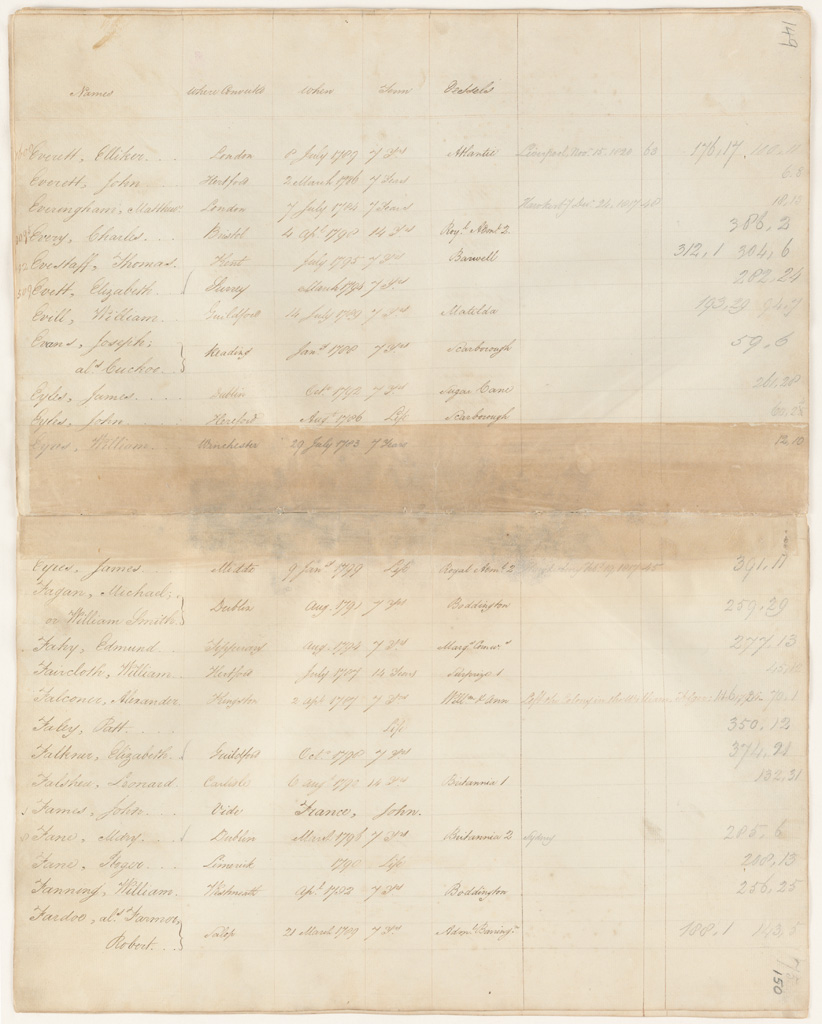 149
Names Where Convicted When Term Vessels
Everett, Elliker London 8 July 1789 7 Yrs Atlantic Liverpool Nov. 15. 1820 63 176,17.
Everett, John Hertford 2 March 1786 7 Years
Everingham, Matthew London 7 July 1784 7 Years
Every, Charles Bristol 4 Apl. 1798 14 Yrs Royl. Adml. 2 386,2
Evestaff, Thomas. Kent July 1795 7 Yrs Barwell 312,1 304,6
Evett, Elizabeth. Surrey March 7 Yrs 282,24
Evill, William Guildford 14 July 1789 7 Yrs Matilda 193,29 94.7
Evans, Joseph; Reading Jany. 1788 7 Yrs Scarborough 59.6
als. Cuckoe
Eyles, James Dublin Octr. 1792 7 Yrs Sugar Cane 261.28
Eyles, John Hereford Augt. 1786 Life Scarborough
Eyres, William Winchester 29 July 1783 7 Years 12.10
Eyres, James Middx 9 Jany. 1799 Life Royal Adml. 2 391.17
Fagan, Michael; Dublin Aug. 1791 7 Yrs Boddington 259.29
or William Smith
Fahy, Edmund Tipperary Aug. 1794 7 Yrs Marqs. Cornws. 277.13
Faircloth, William Hertford July 1787 14 Years Surprize 1
Falconer, Alexander Kingston 2 Apl 1787 7 Yrs Willm. & Ann
Faley, Patt Life 350.12
Falkner, Elizabeth Guildford Octr. 1798 7 Yrs 374.21
Falshew, Leonard Carlisle 6 Aug. 1790 14 Yrs Britannia 1 132.31
Fames, John Vide France, John.
Fane, Mary Dublin March 1796 7 Yrs Britannia 2 Sydney 285.6
Fane, Roger Limerick 1790 Life 208,13
Fanning, William Westmeath Apl. 1792 7 Yrs Boddington 256,25
Fardoe, als. Farmor, Salop 21 March 1789 7 Yrs Adml. Barringn. 188.1 143,5
Robert.
150